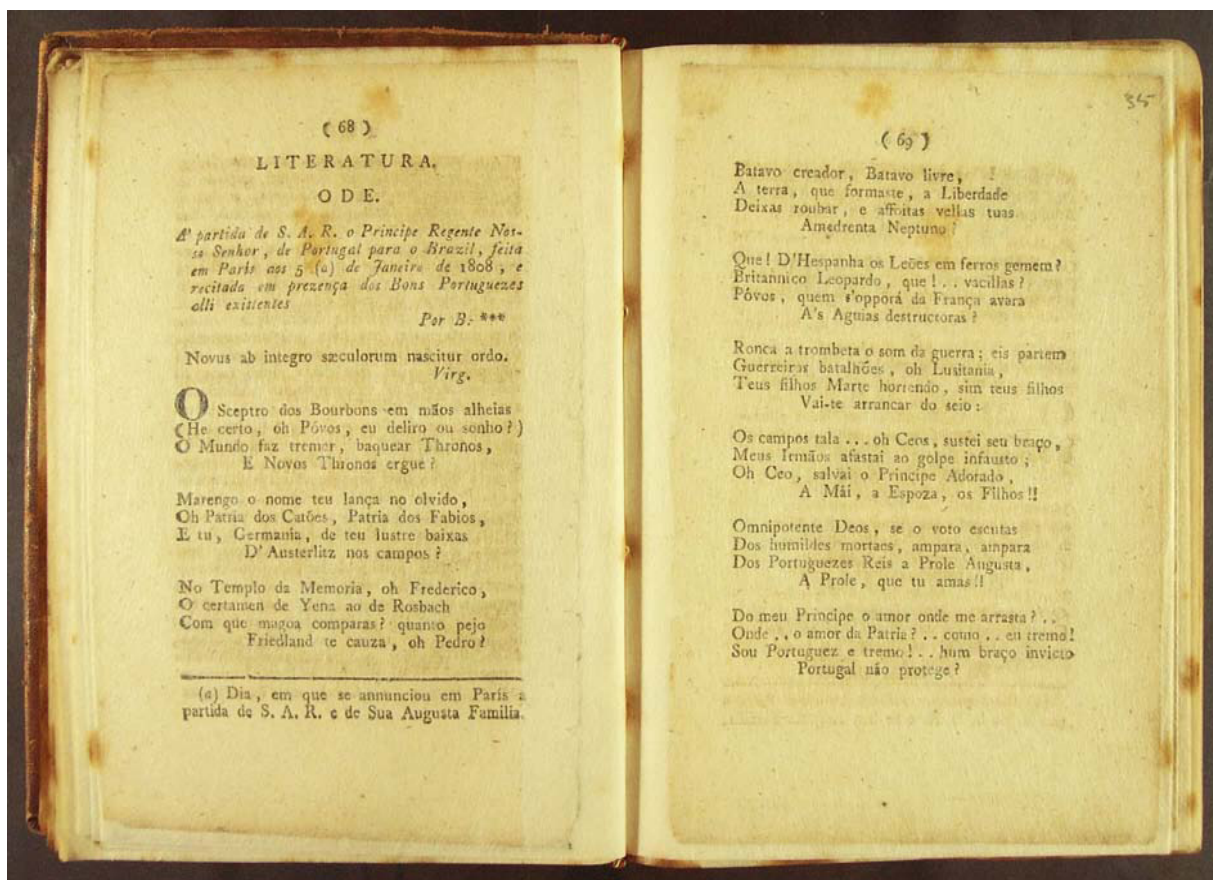 ( 68 )
LITERATURA.
ODE.
A' partida de S. A. R. o Principe Regente Nos-
so Senhor, de Portugal para o Brazil, feita
em París aos 5 (a) de Janeiro de 1808, e
recitada em prezença dos Bons Portuguezes
olli existentes
Por B.- ***
Novus ab integro sæculorum nascitur ordo.
Virg.
O Sceptro dos Bourbons em mãos alheias
(He certo, oh Póvos, eu deliro ou sonho?)
O Mundo faz tremer, baquear Thronos,
E Novos Thronos ergue?
Marengo o nome teu lança no olvido,
Oh Patria dos Catões, Patria dos Fabios,
E tu, Germania, de teu lustre baixas
D'Austerlitz nos campos?
No Templo da Memoria, oh Frederico,
O certamen de Yena ao de Rosbach
Com que magoa comparas? quanto pejo
Friedland te cauza, oh Pedro?
(a) Dia, em que se annunciou em París a
partida de S. A. R. e de Sua Augusta Familia.
35
( 69 )
Batavo creador, Batavo livre,
A terra, que formaste, a Liberdade
Deixas roubar, e affoitas vellas tuas
Amedrenta Neptuno?
Que! D'Hespanha os Leões em ferros gemem?
Britannico Leopardo, que!.. vacillas?
Póvos, quem s'opporá da França avara
A's Aguias destructoras?
Ronca a trombeta o som da guerra; eis partem
Guerreiros batalhões, oh Lusitania,
Teus filhos Marte horrendo, sim teus filhos
Vai-te arrancar do seio:
Os campos tala... oh Ceos, sustei seu braço,
Meus Irmãos afastai ao golpe infausto;
Oh Ceo, salvai o Principe Adorado,
A Mãi, a Espoza, os Filhos!!
Omnipotente Deos, se o voto escutas
Dos humildes mortaes, ampara, ampara
Dos Portuguezes Reis a Prole Augusta,
A Prole, que tu amas!!
Do meu Principe o amor onde me arrasta?..
Onde.. o amor da Patria?.. como.. eu tremo!
Sou Portuguez e tremo!.. hum braço invicto
Portugal não protege?